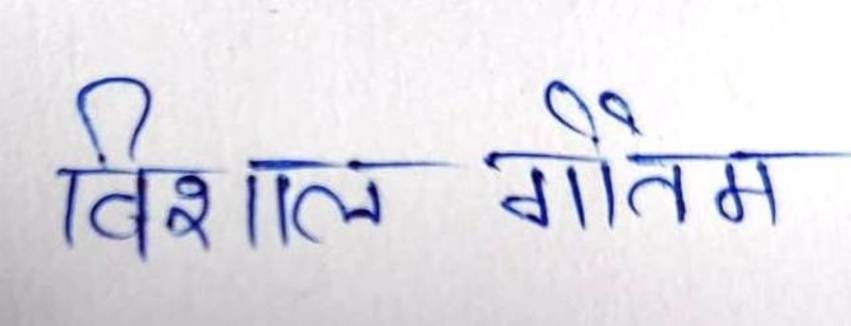 विशाल गौतम